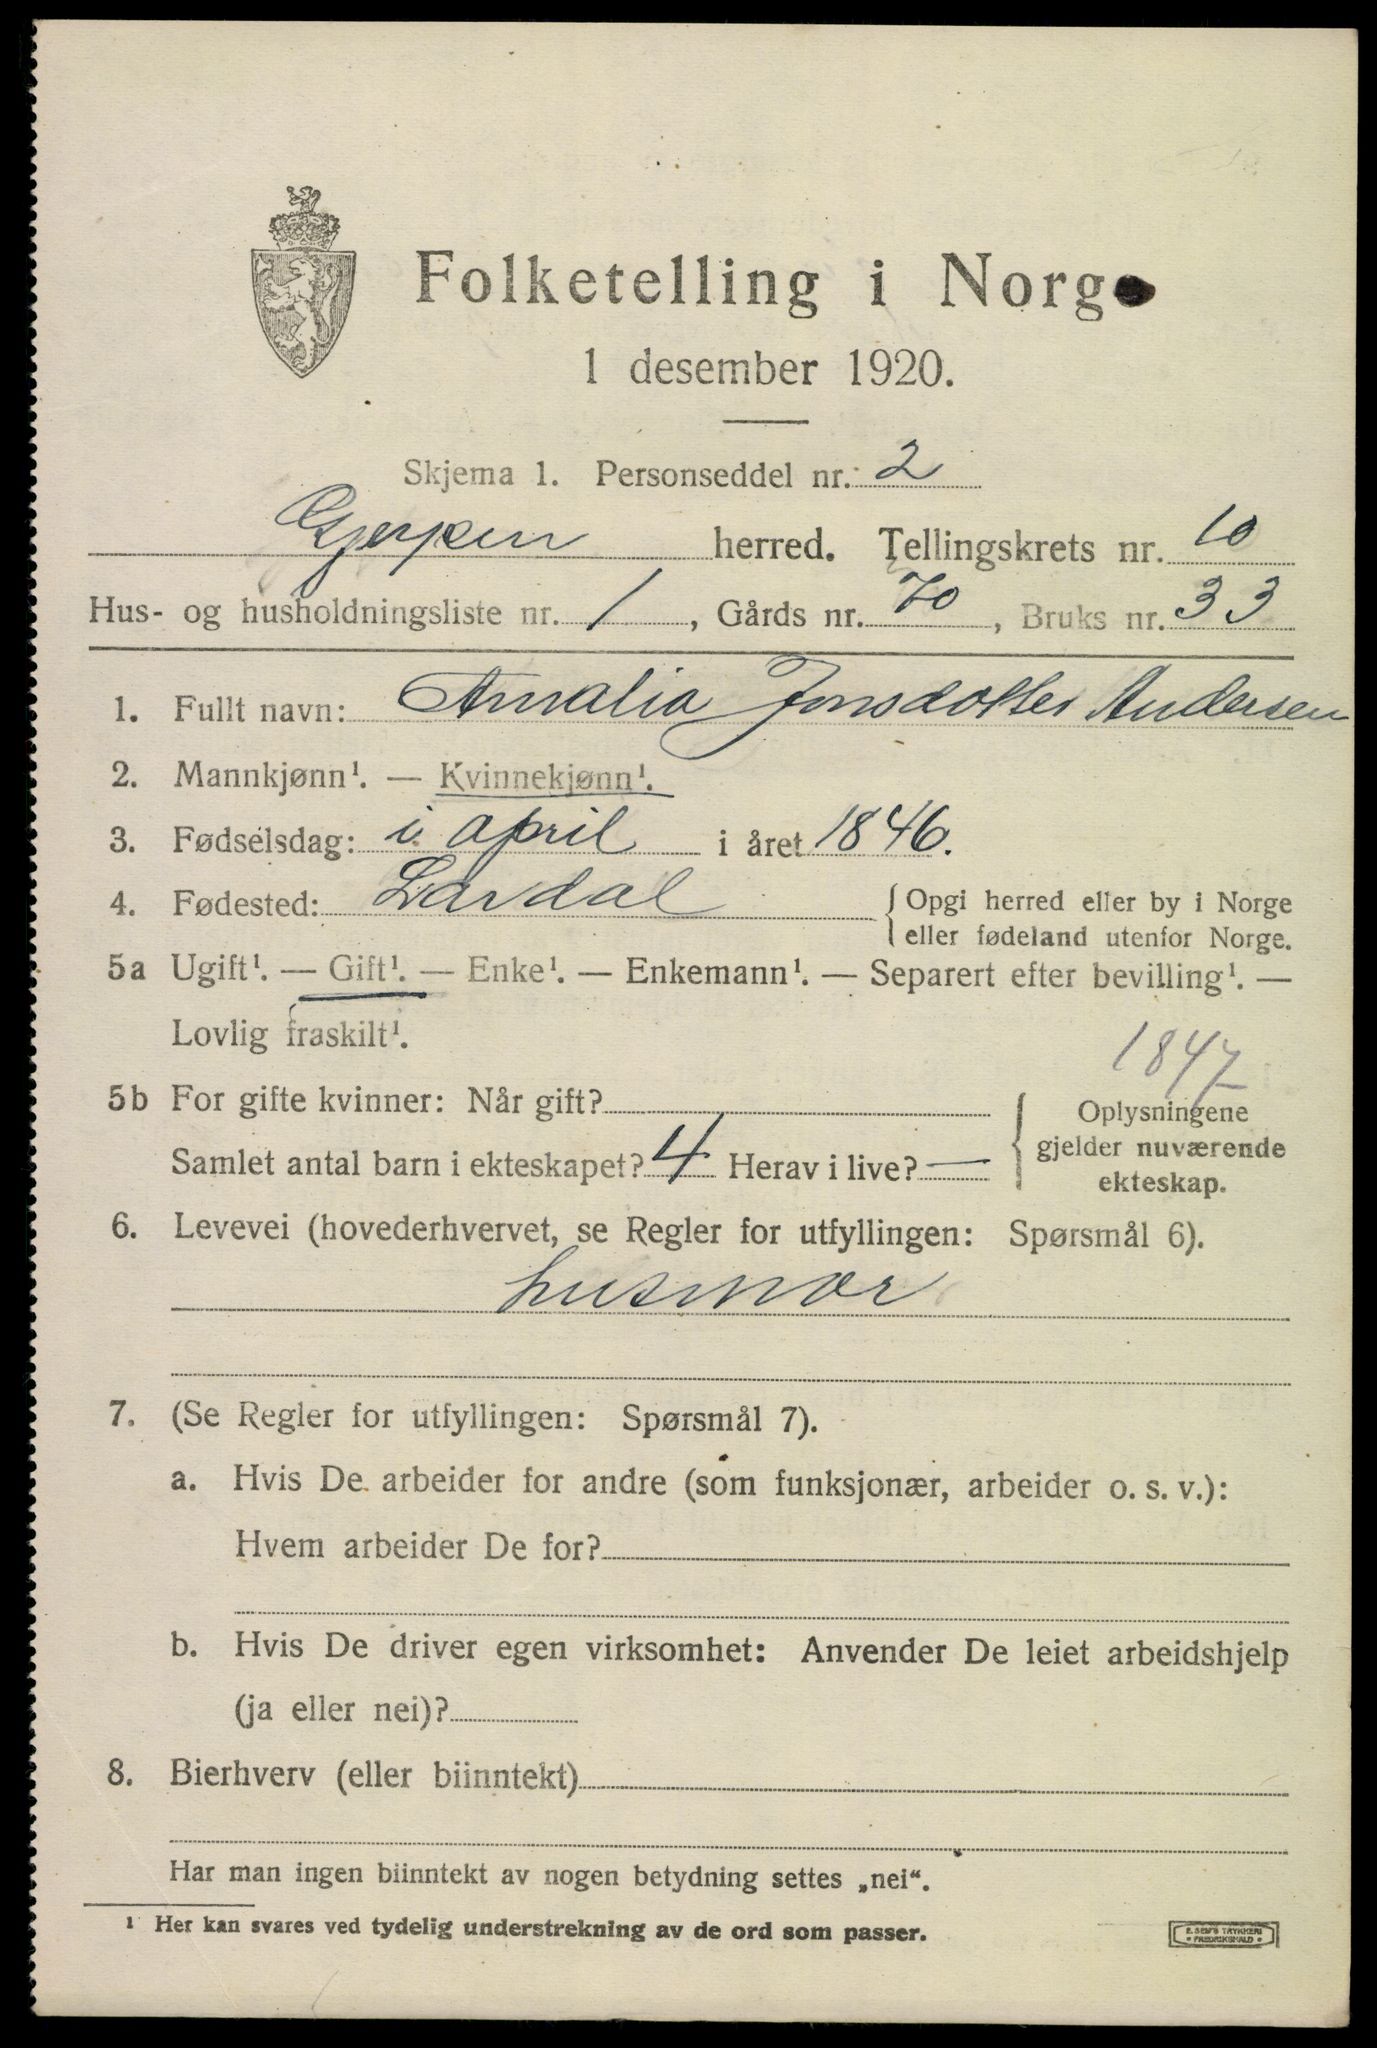 Folketelling i Norge
1 desember 1920.
Skjema 1. Personseddel nr. 2
Gjerpen herred. Tellingskrets nr. 10
Hus- og husholdningsliste nr. 1, Gårds nr. 70, Bruks nr. 33
1. Fullt navn: Amalia Jonsdatter Andersen
2. Mannkjønn¹. — Kvinnekjønn¹.
3. Fødselsdag: i april i året 1846.
4. Fødested: Lardal { Opgi herred eller by i Norge
eller fødeland utenfor Norge.
5a Ugift¹. — Gift¹. — Enke¹. — Enkemann¹. — Separert efter bevilling¹. —
Lovlig fraskilt¹.
1847
5b For gifte kvinner: Når gift?
Samlet antal barn i ekteskapet? 4 Herav i live? —
{ Oplysningene
gjelder nuværende
ekteskap.
6. Levevei (hovederhvervet, se Regler for utfyllingen: Spørsmål 6).
husmor
7. (Se Regler for utfyllingen: Spørsmål 7).
a. Hvis De arbeider for andre (som funksjonær, arbeider o. s. v.):
Hvem arbeider De for?
b. Hvis De driver egen virksomhet: Anvender De leiet arbeidshjelp
(ja eller nei)?
8. Bierhverv (eller biinntekt)
Har man ingen biinntekt av nogen betydning settes „nei“.
¹ Her kan svares ved tydelig understrekning av de ord som passer.
E. SEM'S TRYKKERI
FREDRIKSHALD